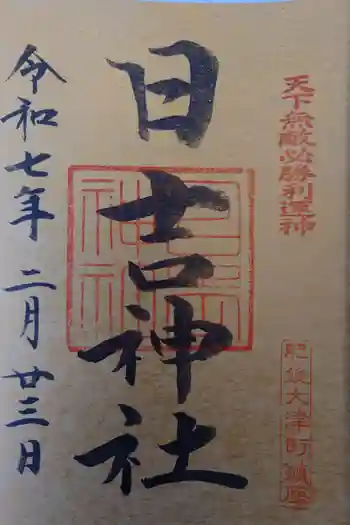 天下無敵必勝利運神
肥後大津町鎮座
日吉神社
令和七年 二月 廿三日